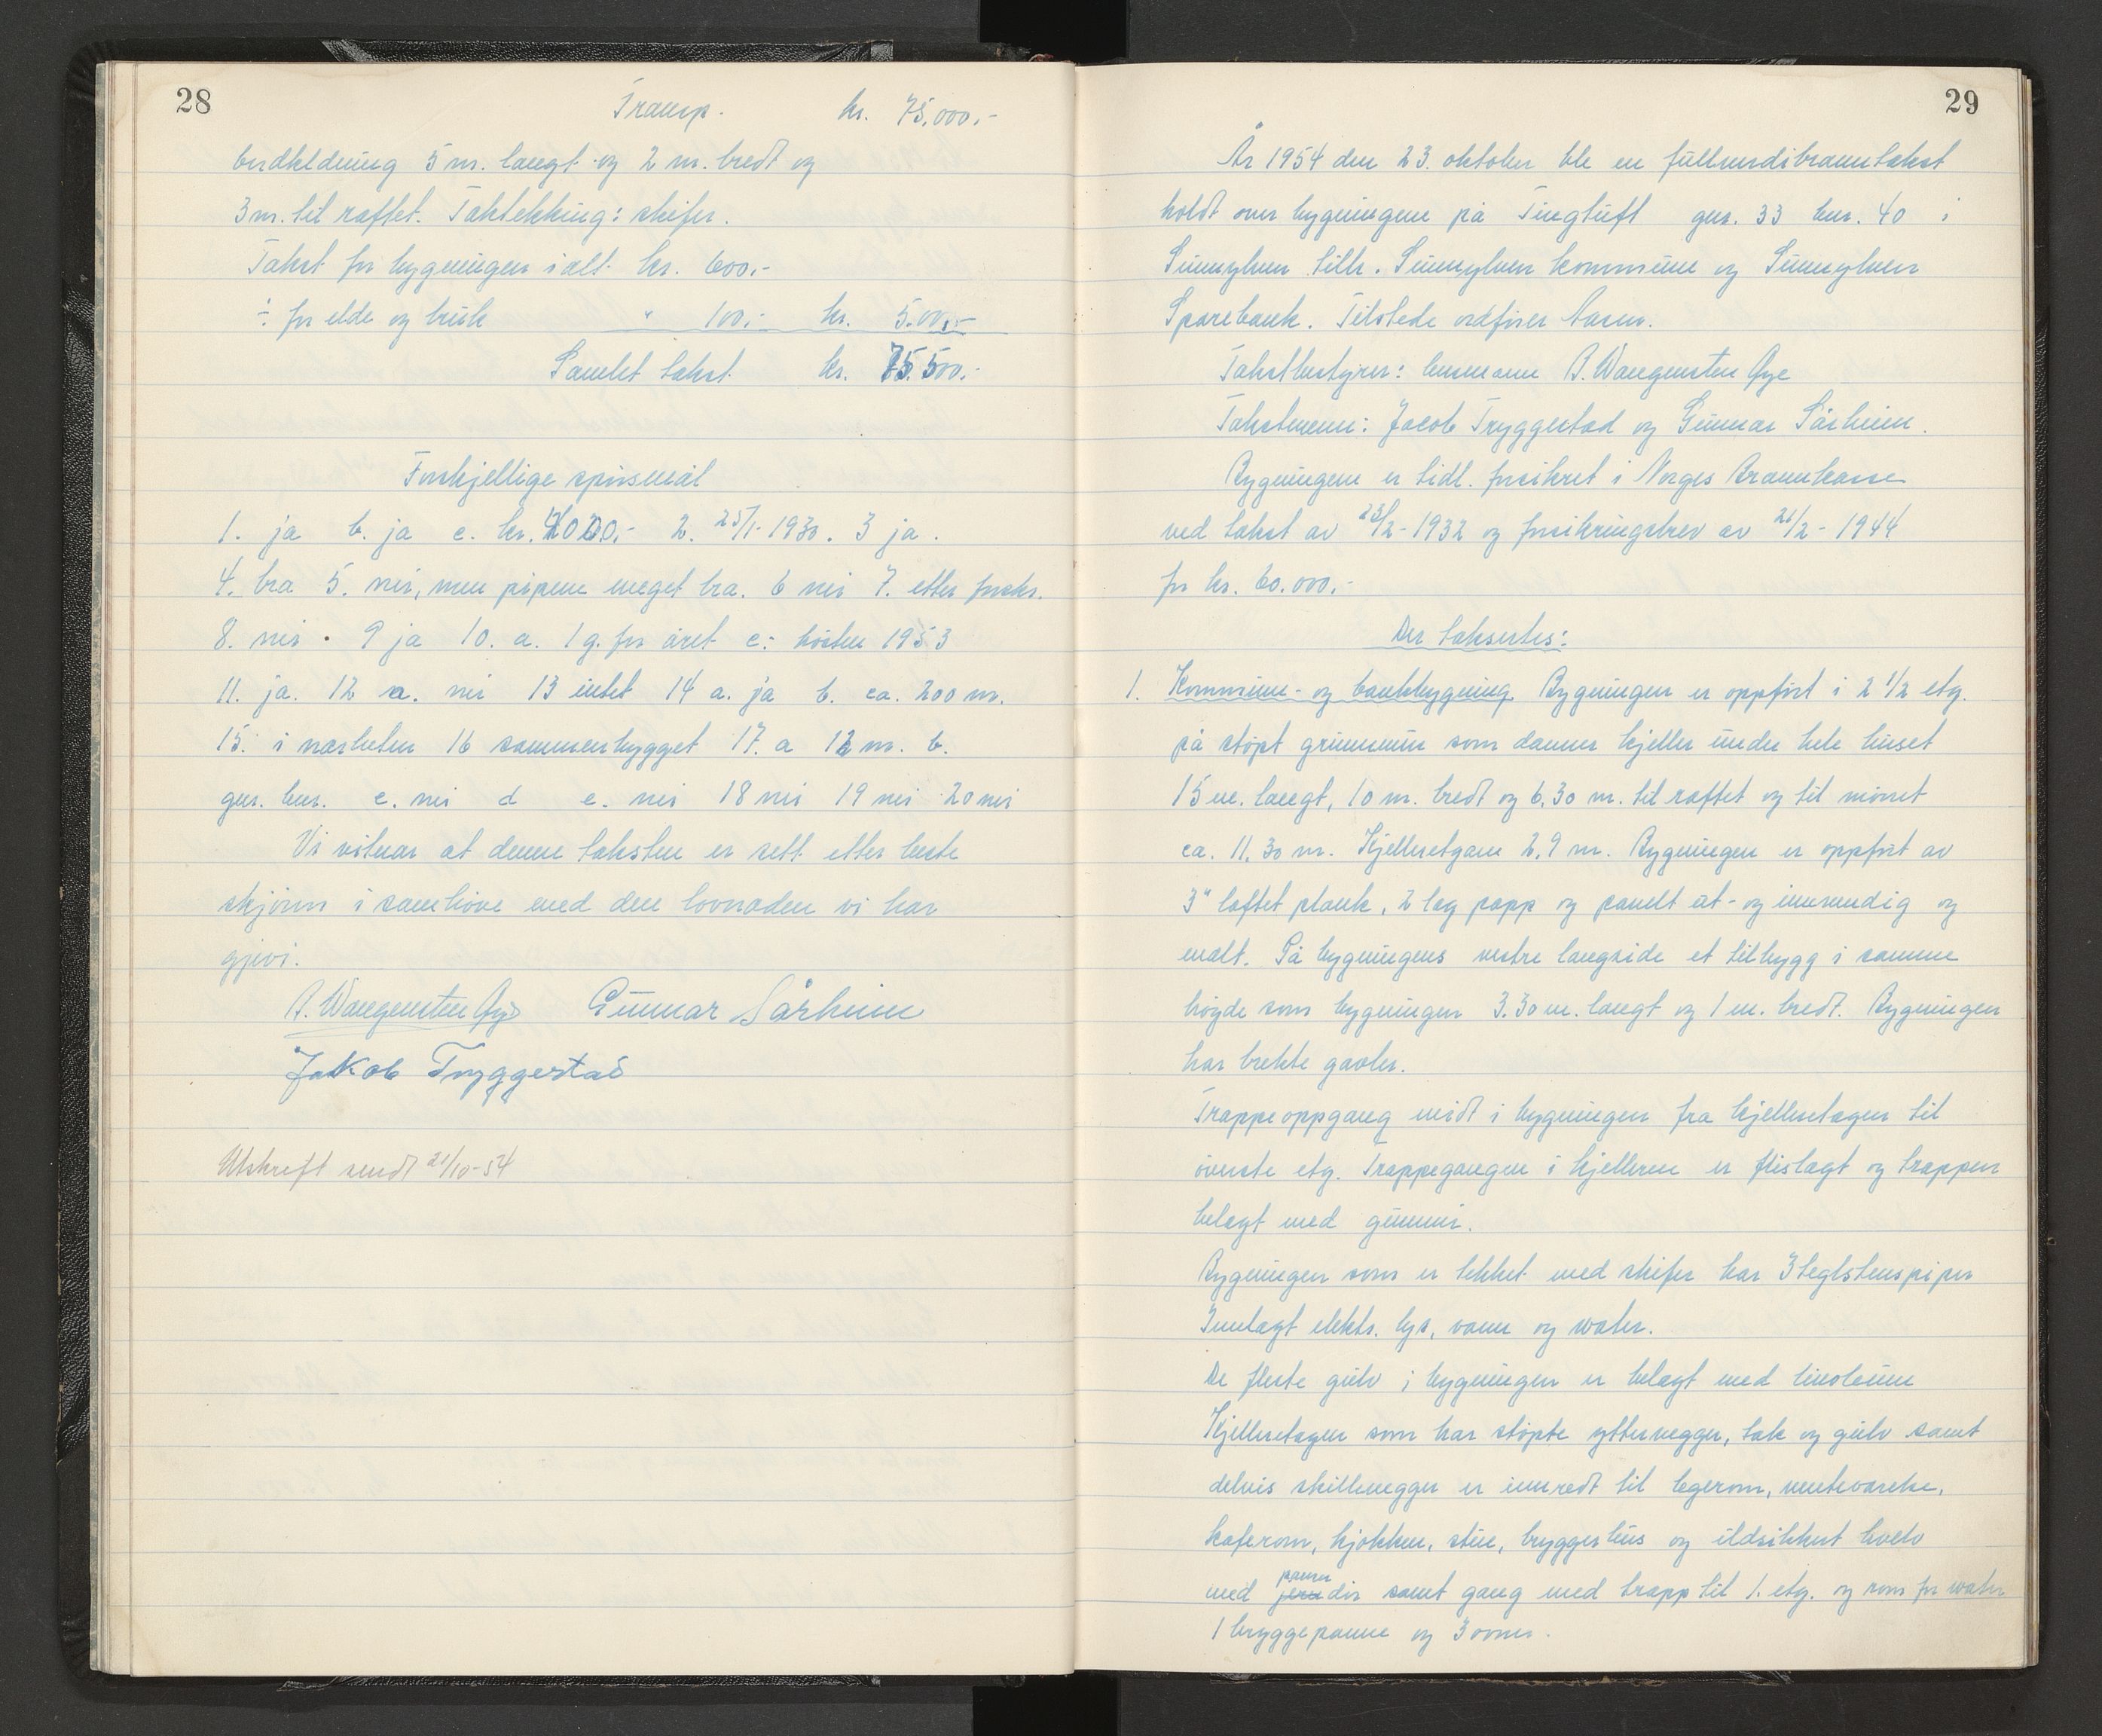 28
Transp. kr. 75.000.-
bordkledning 5 m. langt og 2 m. bredt og
3 m. til raftet. Taktekking: skifer.
Takst for bygningen ialt kr. 600.-
÷ for elde og bruk " 100.- kr. 500.-
Samlet takst kr. 75.500.-
Forskjellige spørsmål
1. ja b. ja c. kr. 2. 25/1-1930. 3 ja.
4. bra 5. nei, men pipene meget bra. 6 nei 7. etter forskr.
8. nei. 9 ja 10. a. 1 g. for året c: hösten 1953
11. ja. 12 a. nei 13 intet 14 a. ja b. ca. 200 m.
15. i nærheten 16 sammenbygget 17. a 12 m. b.
gnr. bnr. c. nei d e. nei 18 nei 19 nei 20 nei
Vi vitnar at denne taksten er sett etter beste
skjönn i samhöve med den lovnaden vi har
gjevi.
B. Wangensten Øye Gunnar Sårheim
Jakob Tryggestad
Utskrift sendt 21/10-54
29
År 1954 den 23. oktober ble en fullverdibranntakst
holdt over bygningene på Tingtuft gnr. 33 bnr. 40 i
Sunnylven tilh. Sunnylven kommune og Sunnylven
Sparebank. Tilstede ordfører Aasen.
Takstbestyrer: lensmann B. Wangensten Øye
Takstmenn: Jacob Tryggestad og Gunnar Sårheim.
Bygningene er tidl. forsikret i Norges Brannkasse
ved takst av 23/2-1932 og forsikringsbrev av 21/2-1944
for kr. 60.000.-
Der takseres:
1. Kommune- og bankbygning. Bygningen er oppført i 2 1/2 etg.
på støpt grunnmur som danner kjeller under hele huset
15 m. langt, 10 m. bredt og 6,30 m. til raftet og til mønet
ca. 11.30 m. Kjelleretgane 2,9 m. Bygningen er oppført av
3" laftet plank, 2 lag papp og panelt ut- og innvendig og
malt. På bygningens vestre langside et tilbygg i samme
høyde som bygningen 3.30 m. langt og 1 m. bredt. Bygningen
har brekte gavler.
Trappeoppgang midt i bygningen fra kjelleretagen til
överste etg. Trappegangen i kjelleren er flislagt og trappen
belagt med gummi.
Bygningen som er tekket med skifer har 3 teglstenspiper
Innlagt elektr. lys, vann og water.
De fleste gulv i bygningen er belagt med linoleum
Kjelleretagen som har støpte yttervegger, tak og gulv samt
delvis skillevegger er innredt til legerom, venteværelse,
kaferom, kjøkken, stue, bryggerhus og ildsikkert hvelv
med panser dör samt gang med trapp til 1. etg. og rom for water
1 bryggepanne og 3 ovner.